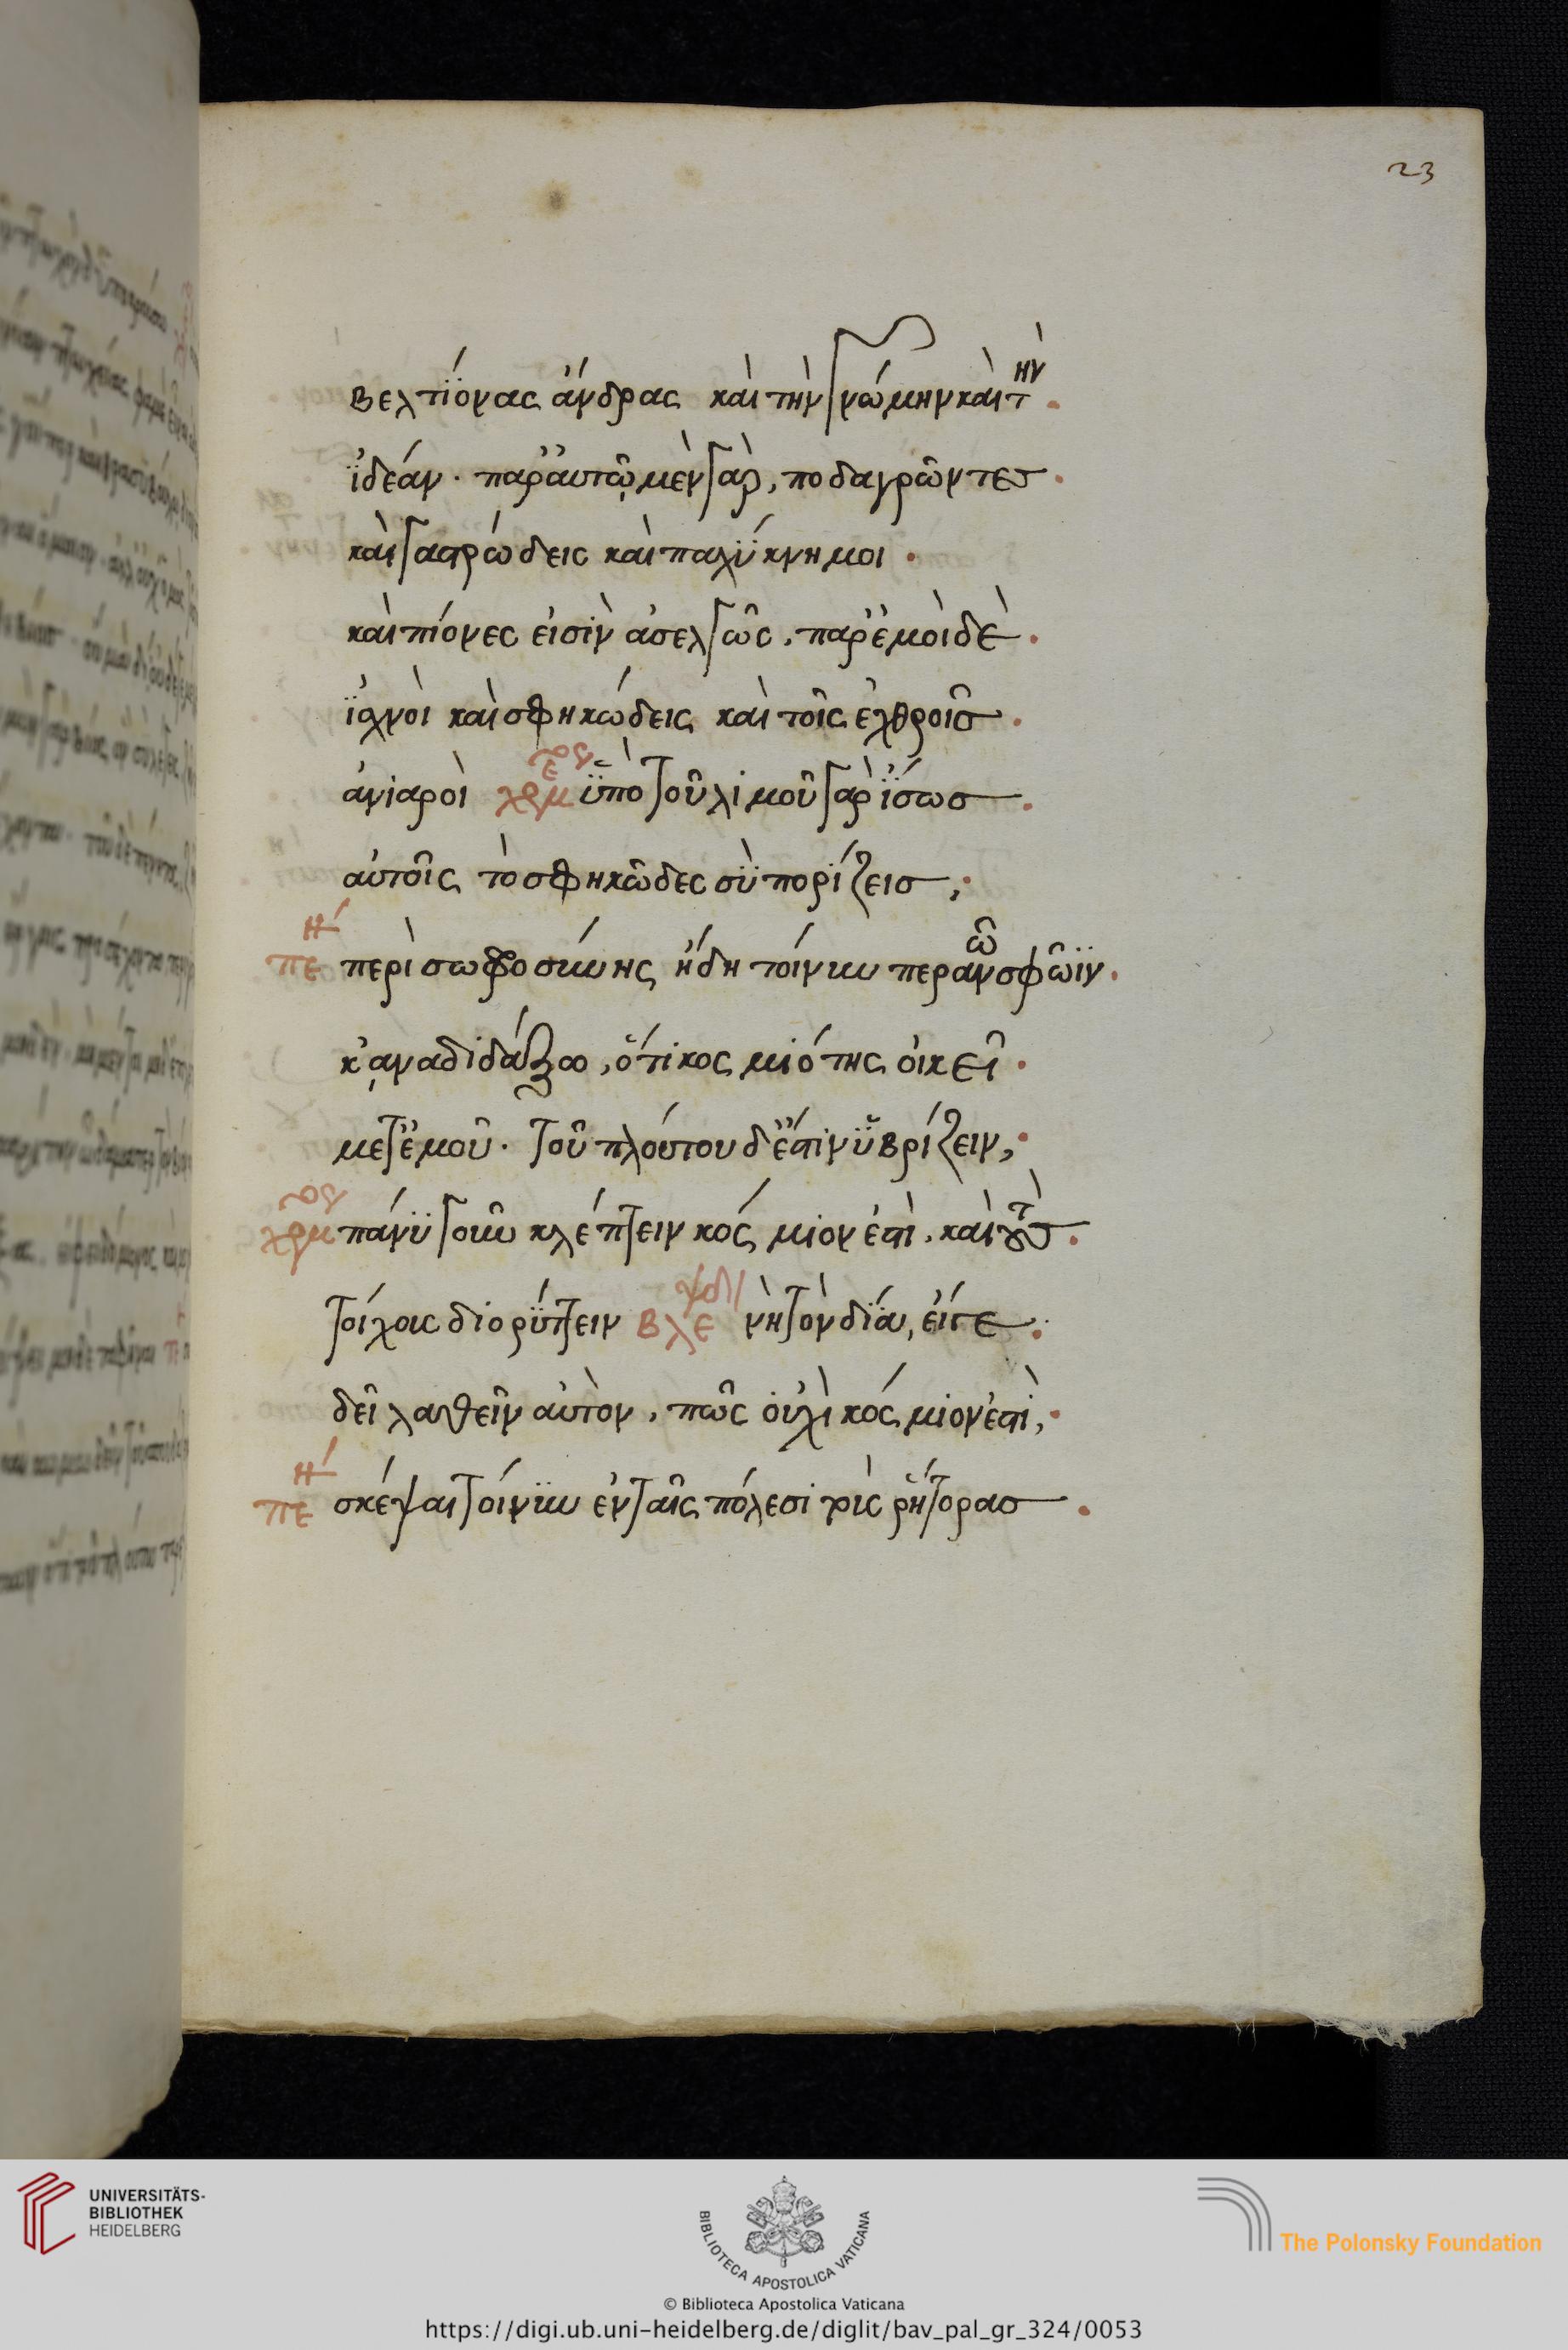 23
βελτϊόνας ἄνδρας καὶ τὴν γνώμην καὶ τὴν
ϊδέαν · παρ' αὐτῷ μὲν γὰρ, ποδαγρῶντες
καὶ γαστρώδεις καὶ παχΰκνημοι ·
καὶ πίονες εἰσὶν ἀσελγῶς, παρ' ἐμοὶ δὲ ·
ἰσχνοὶ καὶ σφηκώδεις καὶ τοῖς ἐχθροῖς ·
ἀνιαροὶ χρεμ ὑπὸ τοῦ λιμοῦ γὰρ ἴσως ·
αὐτοῖς τὸ σφηκῶδες σὺ πορίζεις ;
πε περὶ σωφροσύνης ἤδη τοίνυν περανῶ σφῶϊν ·
κᾀναδιδάξω, ὅτι κοσμιότης οἰκεῖ ·
μετ' ἐμοῦ · τοῦ πλούτου δ' ἐστὶν ὑβρίζειν ;
χρεμ πάνυ γοῦν κλέπτειν κόσμιον ἐστὶ, καὶ τοὺς ·
τοίχους διορύττειν βλε νὴ τὸν δία, εἴ γε ·
δεῖ λαθεῖν αὐτὸν, πῶς οὐχὶ κόσμιον ἐστὶ ;
πε σκέψαι τοίνυν ἐν ταῖς πόλεσι τοὺς ῥήτορας ·
UNIVERSITÄTS-
BIBLIOTHEK
HEIDELBERG
BIBLIOTECA APOSTOLICA VATICANA
© Biblioteca Apostolica Vaticana
The Polonsky Foundation
https://digi.ub.uni-heidelberg.de/diglit/bav_pal_gr_324/0053